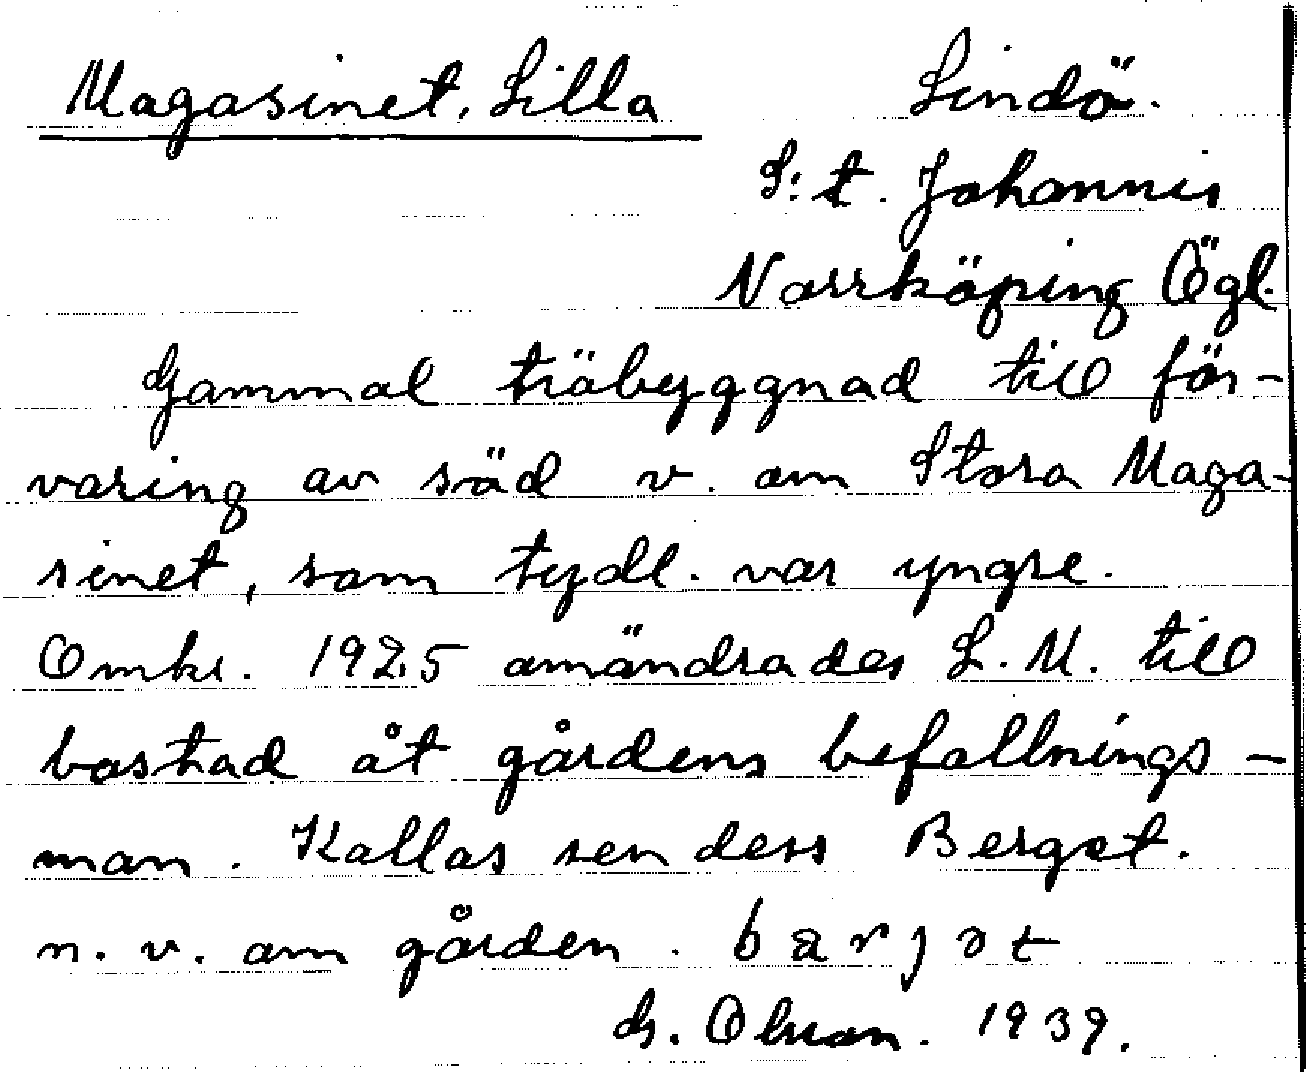 Magasinet, Lilla Lindö.
S:t. Johannis
Norrköping Ögl.
Gammal träbyggnad till för-
varing av säd v. om Stora Maga-
sinet, som tydl. var yngre.
Omkr. 1925 omändrades L. M. till
bostad åt gårdens befallnings-
man. Kallas sen dess Berget.
n. v. om gården.
G. Olson. 1939.